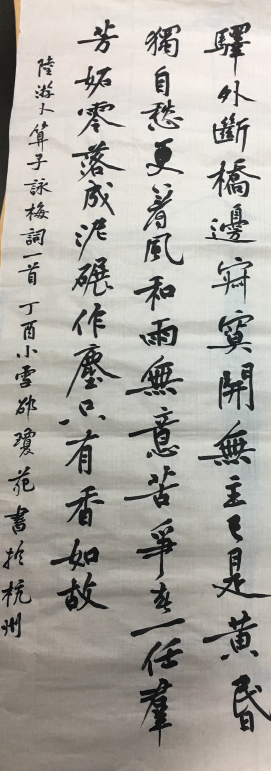 驛外斷橋邊寂寞開無主已是黃昏
獨自愁更著風和雨無意苦爭春一任羣
芳妬零落成泥碾作塵只有香如故
陸游卜算子詠梅詞一首丁酉小雪邵瓊苑書於杭州